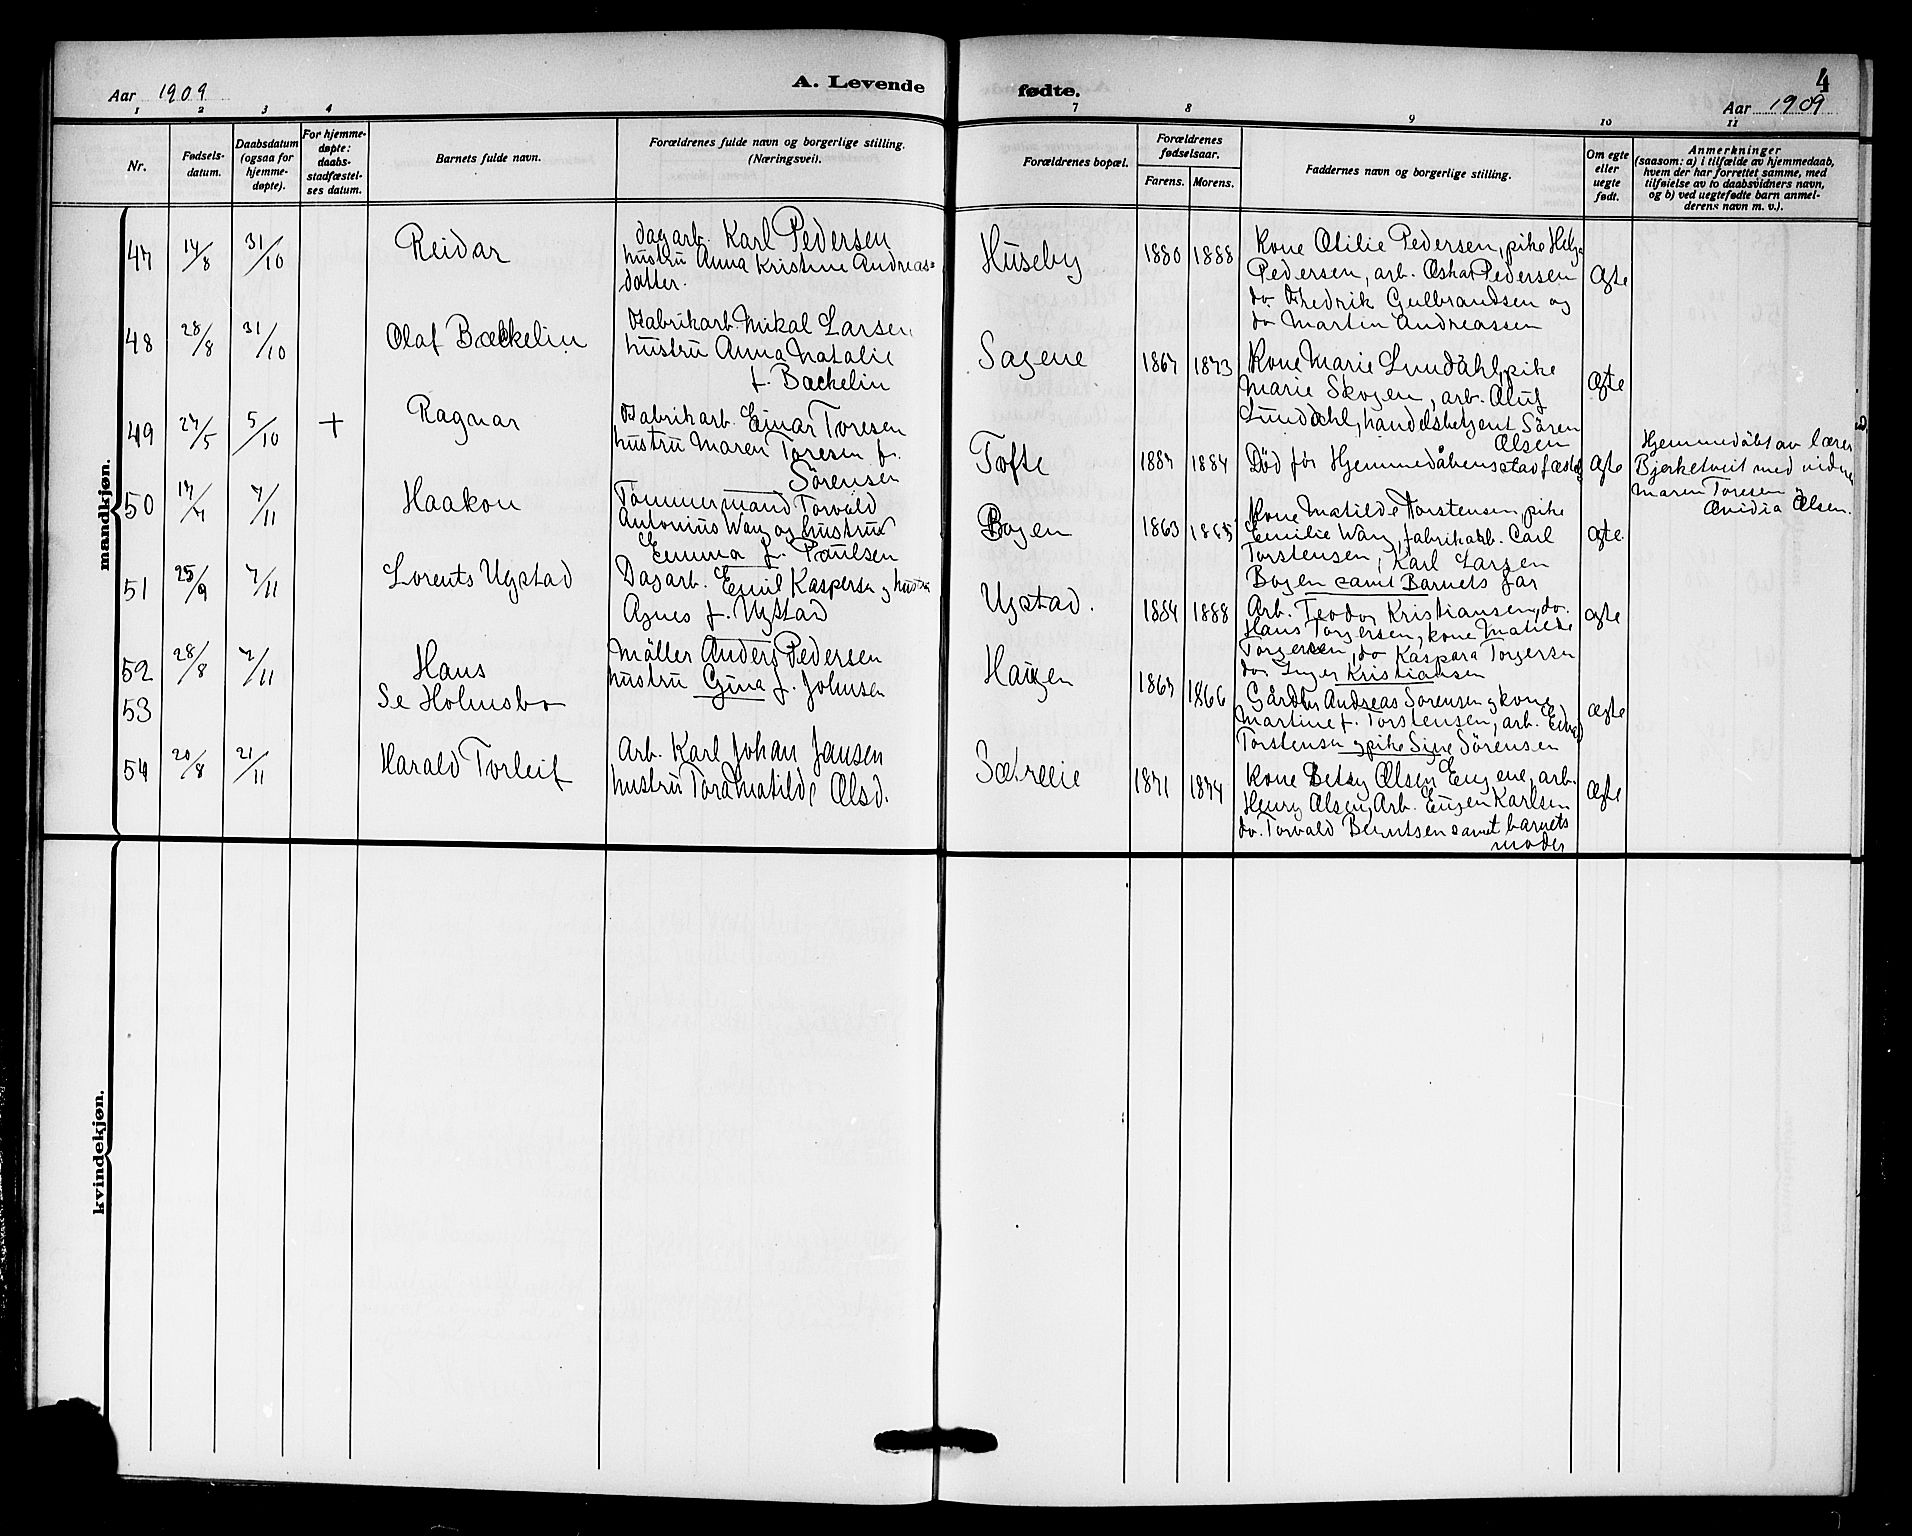 Aar 1909
A. Levende
1 2 3 4
Nr.
Fødsels-
datum.
Daabsdatum
(ogsaa for
hjemme-
døpte).
For hjemme-
døpte:
daabs-
stadfæstel-
ses datum.
Barnets fulde navn.
Forældrenes fulde navn og borgerlige stilling.
(Næringsvei).
mandkjøn.
47 14/8 31/10 Reidar
dagarb. Karl Pedersen
hustru Anna Kristine Andreas=
datter.
48 28/8 31/10 Olaf Backelin
Fabrikarb. Mikal Larsen
hustru Anna Natalie
f. Backelin
49 27/5 5/10 + Ragnar
Fabrikarb. Einar Toresen
hustru Maren Toresen f.
Sørensen
50 7/11 Haakon
Tømmermand Torvald
Antonius Wang og hustru
Emma f. Paulsen
51 25/9 7/11 Lorents Ugstad
Dagarb. Emil Kaspersen og hustru
Agnes f. Ugstad
52 28/8 7/11 Hans
Møller Anders Pedersen
hustru Gina f. Johnsen
53 Se Holmsbo
54 20/8 21/11 Harald Torleif
Arb. Karl Johan Jansen
hustru Tora Matilde Olsd.
kvindekjøn.
fødte.
4
Aar 1909
7 8 9 10 11
Forældrenes bopæl.
Forældrenes
fødselsaar.
Farens. Morens.
Faddernes navn og borgerlige stilling.
Om egte
eller
uegte
født.
Anmerkninger
(saasom: a) i tilfælde av hjemmedaab,
hvem der har forrettet samme, med
tilføielse av to daabsvidners navn,
og b) ved uegtefødte barn anmel-
derens navn m. v.).
Huseby 1880 1888
Kone Otilie Pedersen, pike Helga
Pedersen, arb. Oskar Pedersen
do Fredrik Gulbrandsen og
do Martin Andreassen
ægte
Sagene 1867 1873
Kone Marie Lundahl, pike
Marie Skogen, arb. Oluf
Lunddahl, handelsbetjent Sören
Olsen
ægte
Tofte 1887 1884
Død før Hjemmedåbens stadfæstelse
ægte
Hjemmedøbt av lærer
Bjerketveit med vidne
Maren Toresen &
Ovidia Olsen.
Bogen 1863 1865
Kone Matilde Torstensen, pike
Emilie Wang, fabrikarb. Carl
Torstensen, Karl Larsen
Bogen samt Barnets far
ægte.
Ugstad. 1884 1888
Arb. Teodor Kristiansen, do.
Hans Torgersen, kone Matilde
Torgersen, do Kaspara Torgersen
do Inger Kristiansen
ægte
Haugen 1867 1866
Gårdbr Andreas Sørensen og kone
Martine f. Torstensen, arb. Edvard
Torstensen og pike Sine Sörensen
ægte
Sætreeie 1871 1874
Kone Betsy Olsen Eugene, arb.
Henry Olsen, Arb. Eugen Karlsen
do. Torvald Berntsen samt barnets
moder
ægte